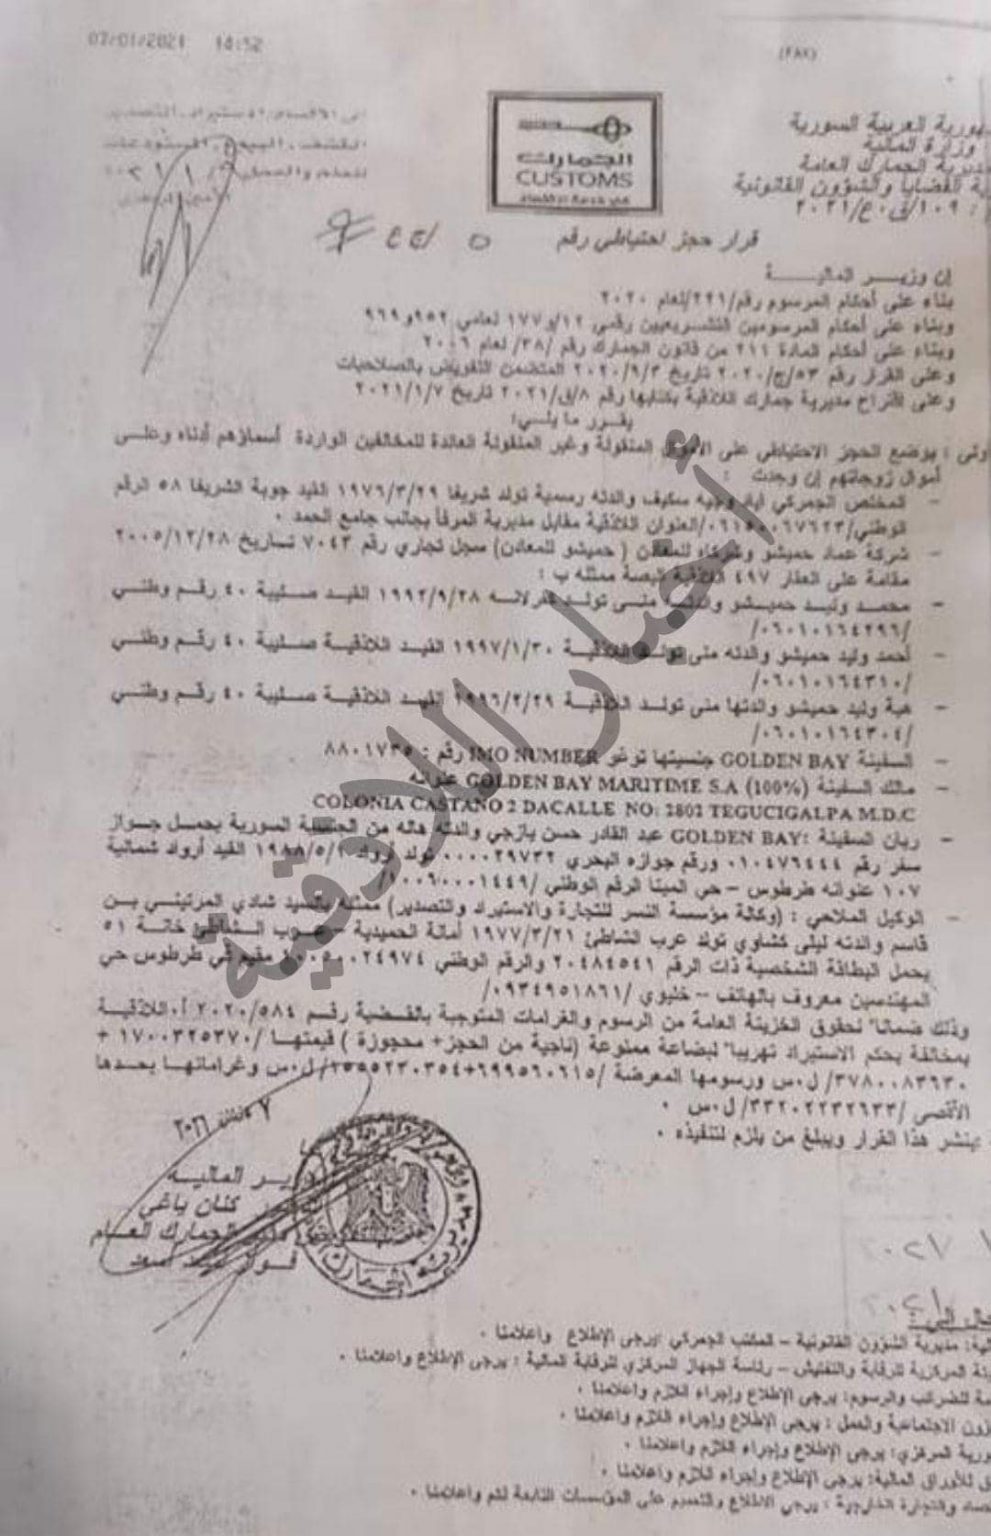 07/01/2021 14:52
(FAX)
الجمهورية العربية السورية
وزارة المالية
مديرية الجمارك العامة
القضايا والشؤون القانونية
١٠٩/ق.ع/٢٠٢١
الجمارك
CUSTOMS
قرار حجز احتياطي رقم
إن وزير المالية
بناء على أحكام المرسوم رقم/٢٢١/لعام ٢٠٢٠
وبناء على أحكام المرسومين التشريعيين رقمي ١٢/و١٧٧ لعامي ٩٥٢و٩٦٩
وبناء على أحكام المادة ٢١١ من قانون الجمارك رقم /٣٨/ لعام ٢٠٠٦
وعلى القرار رقم ٥٣/ج/٢٠٢٠ تاريخ ٢٠٢٠/٩/٣ المتضمن التفويض بالصلاحيات
وعلى اقتراح مديرية جمارك اللاذقية بكتابها رقم ٨/ق/٢٠٢١ تاريخ ٢٠٢١/١/٧
يقرر ما يلي:
أولى : يوضع الحجز الاحتياطي على الأموال المنقولة وغير المنقولة العائدة للمخالفين الواردة أسماؤهم أدناه وعلى
أموال زوجاتهم إن وجدت :
- المخلص الجمركي اياد وجيه سكيف والدته رسمية تولد شريفا ١٩٧٦/٣/٢٩ القيد جوبة الشريفا ٥٨ الرقم
الوطني العنوان اللاذقية مقابل مديرية المرفأ بجانب جامع الحمد .
- شركة عماد حميشو وشركاه للمعادن ( حميشو للمعادن) سجل تجاري رقم ٧٠٤٣ تاريخ ٢٠٠٥/١٢/٢٨
مقامة على العقار ٤٩٧ اللاذقية البصة ممثله ب :
- محمد وليد حميشو والدته منى تولد ١٩٩٢/٩/٢٨ القيد صليبة ٤٠ رقم وطني
/٠٦٠١٠١٦٤٢٩٦/
- أحمد وليد حميشو والدته منى تولد اللاذقية ١٩٩٧/١/٣٠ القيد اللاذقية صليبة ٤٠ رقم وطني
/٠٦٠١٠١٦٤٣١٠/
- هبة وليد حميشو والدتها منى تولد اللاذقية ١٩٩٦/٢/٢٩ القيد اللاذقية صليبة ٤٠ رقم وطني
/٠٦٠١٠١٦٤٣٠٤/
- السفينة GOLDEN BAY جنسيتها توغو IMO NUMBER رقم : ٨٨٠١٧٣٥
- مالك السفينة GOLDEN BAY MARITIME S.A (100%) عنوانه
COLONIA CASTANO 2 DACALLE NO: 2802 TEGUCIGALPA M.D.C
- ربان السفينة :GOLDEN BAY عبد القادر حسن يازجي والدته هاله من الجنسية السورية يحمل جواز
سفر رقم ٠١٠٤٧٦٤٤٤ ورقم جوازه البحري ٠٠٠٠٢٩٧٣٢ تولد أرواد ١٩٨٨/٥/١ القيد أرواد شمالية
١٠٧ عنوانه طرطوس – حي المينا الرقم الوطني /١٠٠٦٠٠٠١٤٤٩/
- الوكيل الملاحي : (وكالة مؤسسة النسر للتجارة والاستيراد والتصدير) ممثله بالسيد شادي المرتيني بن
قاسم والدته ليلى كشاوي تولد عرب الشاطئ ١٩٧٧/٣/٢١ أمانة الحميدية – عرب الشاطئ خانة ٥١
يحمل البطاقة الشخصية ذات الرقم ٢٠٤٨٤٥٤١ والرقم الوطني مقيم في طرطوس حي
المهندسين معروف بالهاتف – خليوي /٠٩٣٤٩٥١٨٦١/
وذلك ضمانا" لحقوق الخزينة العامة من الرسوم والغرامات المتوجبة بالقضية رقم ٢٠٢٠/٥٨٤ أ.اللاذقية
بمخالفة بحكم الاستيراد تهريبا" لبضاعة ممنوعة (ناجية من الحجز+ محجوزة ) قيمتها /١٧٠٠٣٢٥٣٧٠ +
٣٧٨٠٠٨٣٦٣٠/ ل.س ورسومها المعرضة ل.س وغراماتها بحدها
الأقصى /٣٣٢٠٢٢٣٢٦٣٣/ ل.س .
ينشر هذا القرار ويبلغ من يلزم لتنفيذه .
وزير المالية
كنان ياغي
الجمارك العام
أسعد
مديرية الجمارك
مديرية الشؤون القانونية – المكتب الجمركي يرجى الإطلاع وإعلامنا .
المركزية للرقابة والتفتيش – رئاسة الجهاز المركزي للرقابة المالية : يرجى الإطلاع وإعلامنا .
للضرائب والرسوم: يرجى الإطلاع وإجراء اللازم وإعلامنا .
الاجتماعية والعمل : يرجى الإطلاع وإجراء اللازم وإعلامنا .
المركزي: يرجى الإطلاع وإجراء اللازم وإعلامنا .
للأوراق المالية: يرجى الإطلاع وإجراء اللازم وإعلامنا .
والتجارة الخارجية : يرجى الاطلاع والتعميم على المؤسسات التابعة لكم وإعلامنا .
أخبار اللاذقية